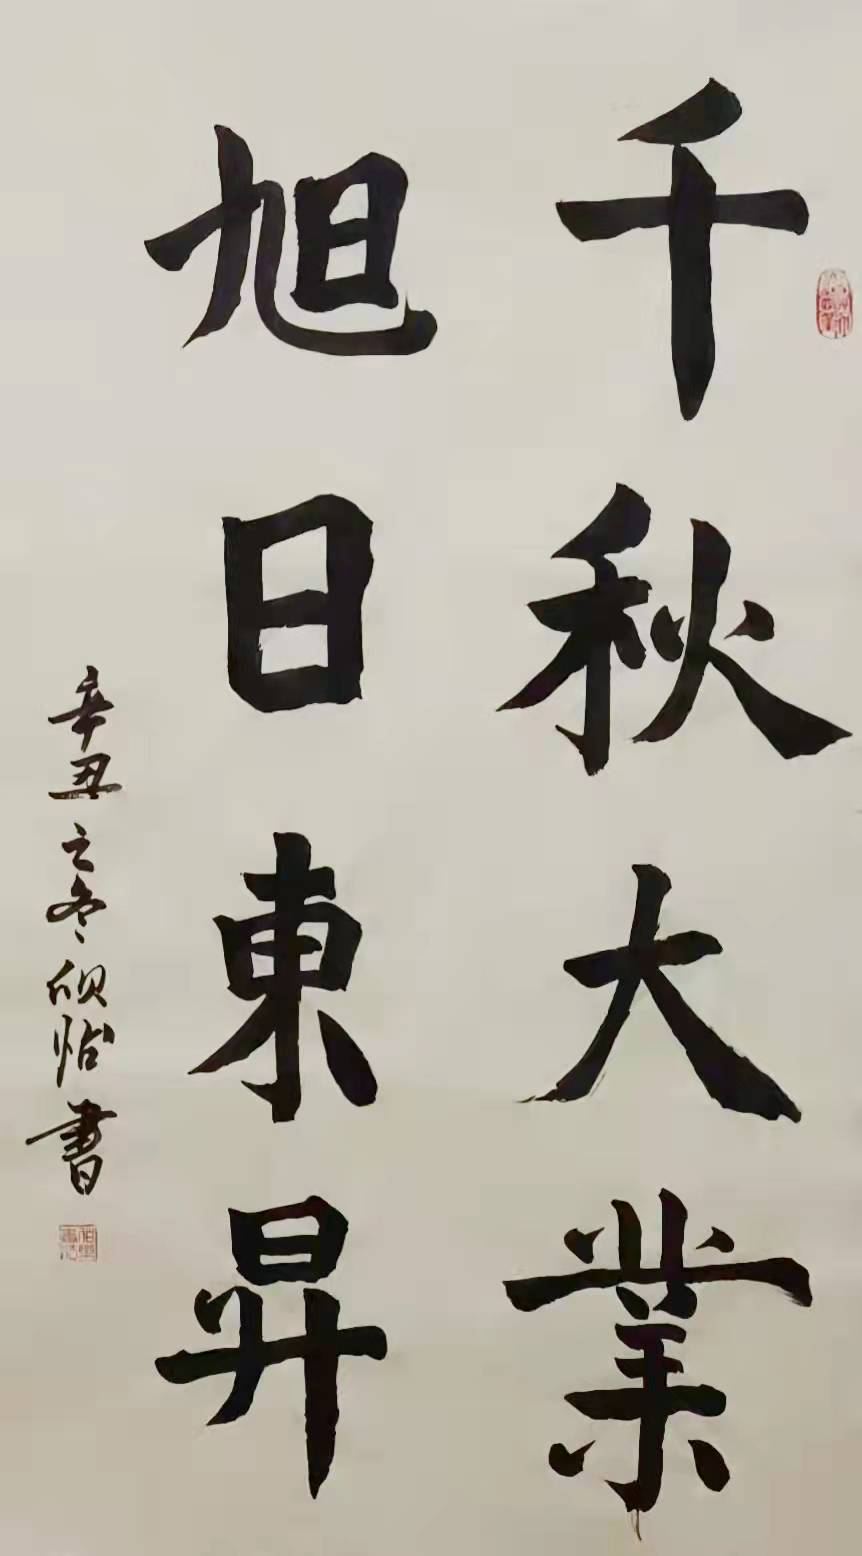 千秋大業
旭日東昇
辛丑之冬硕怡書